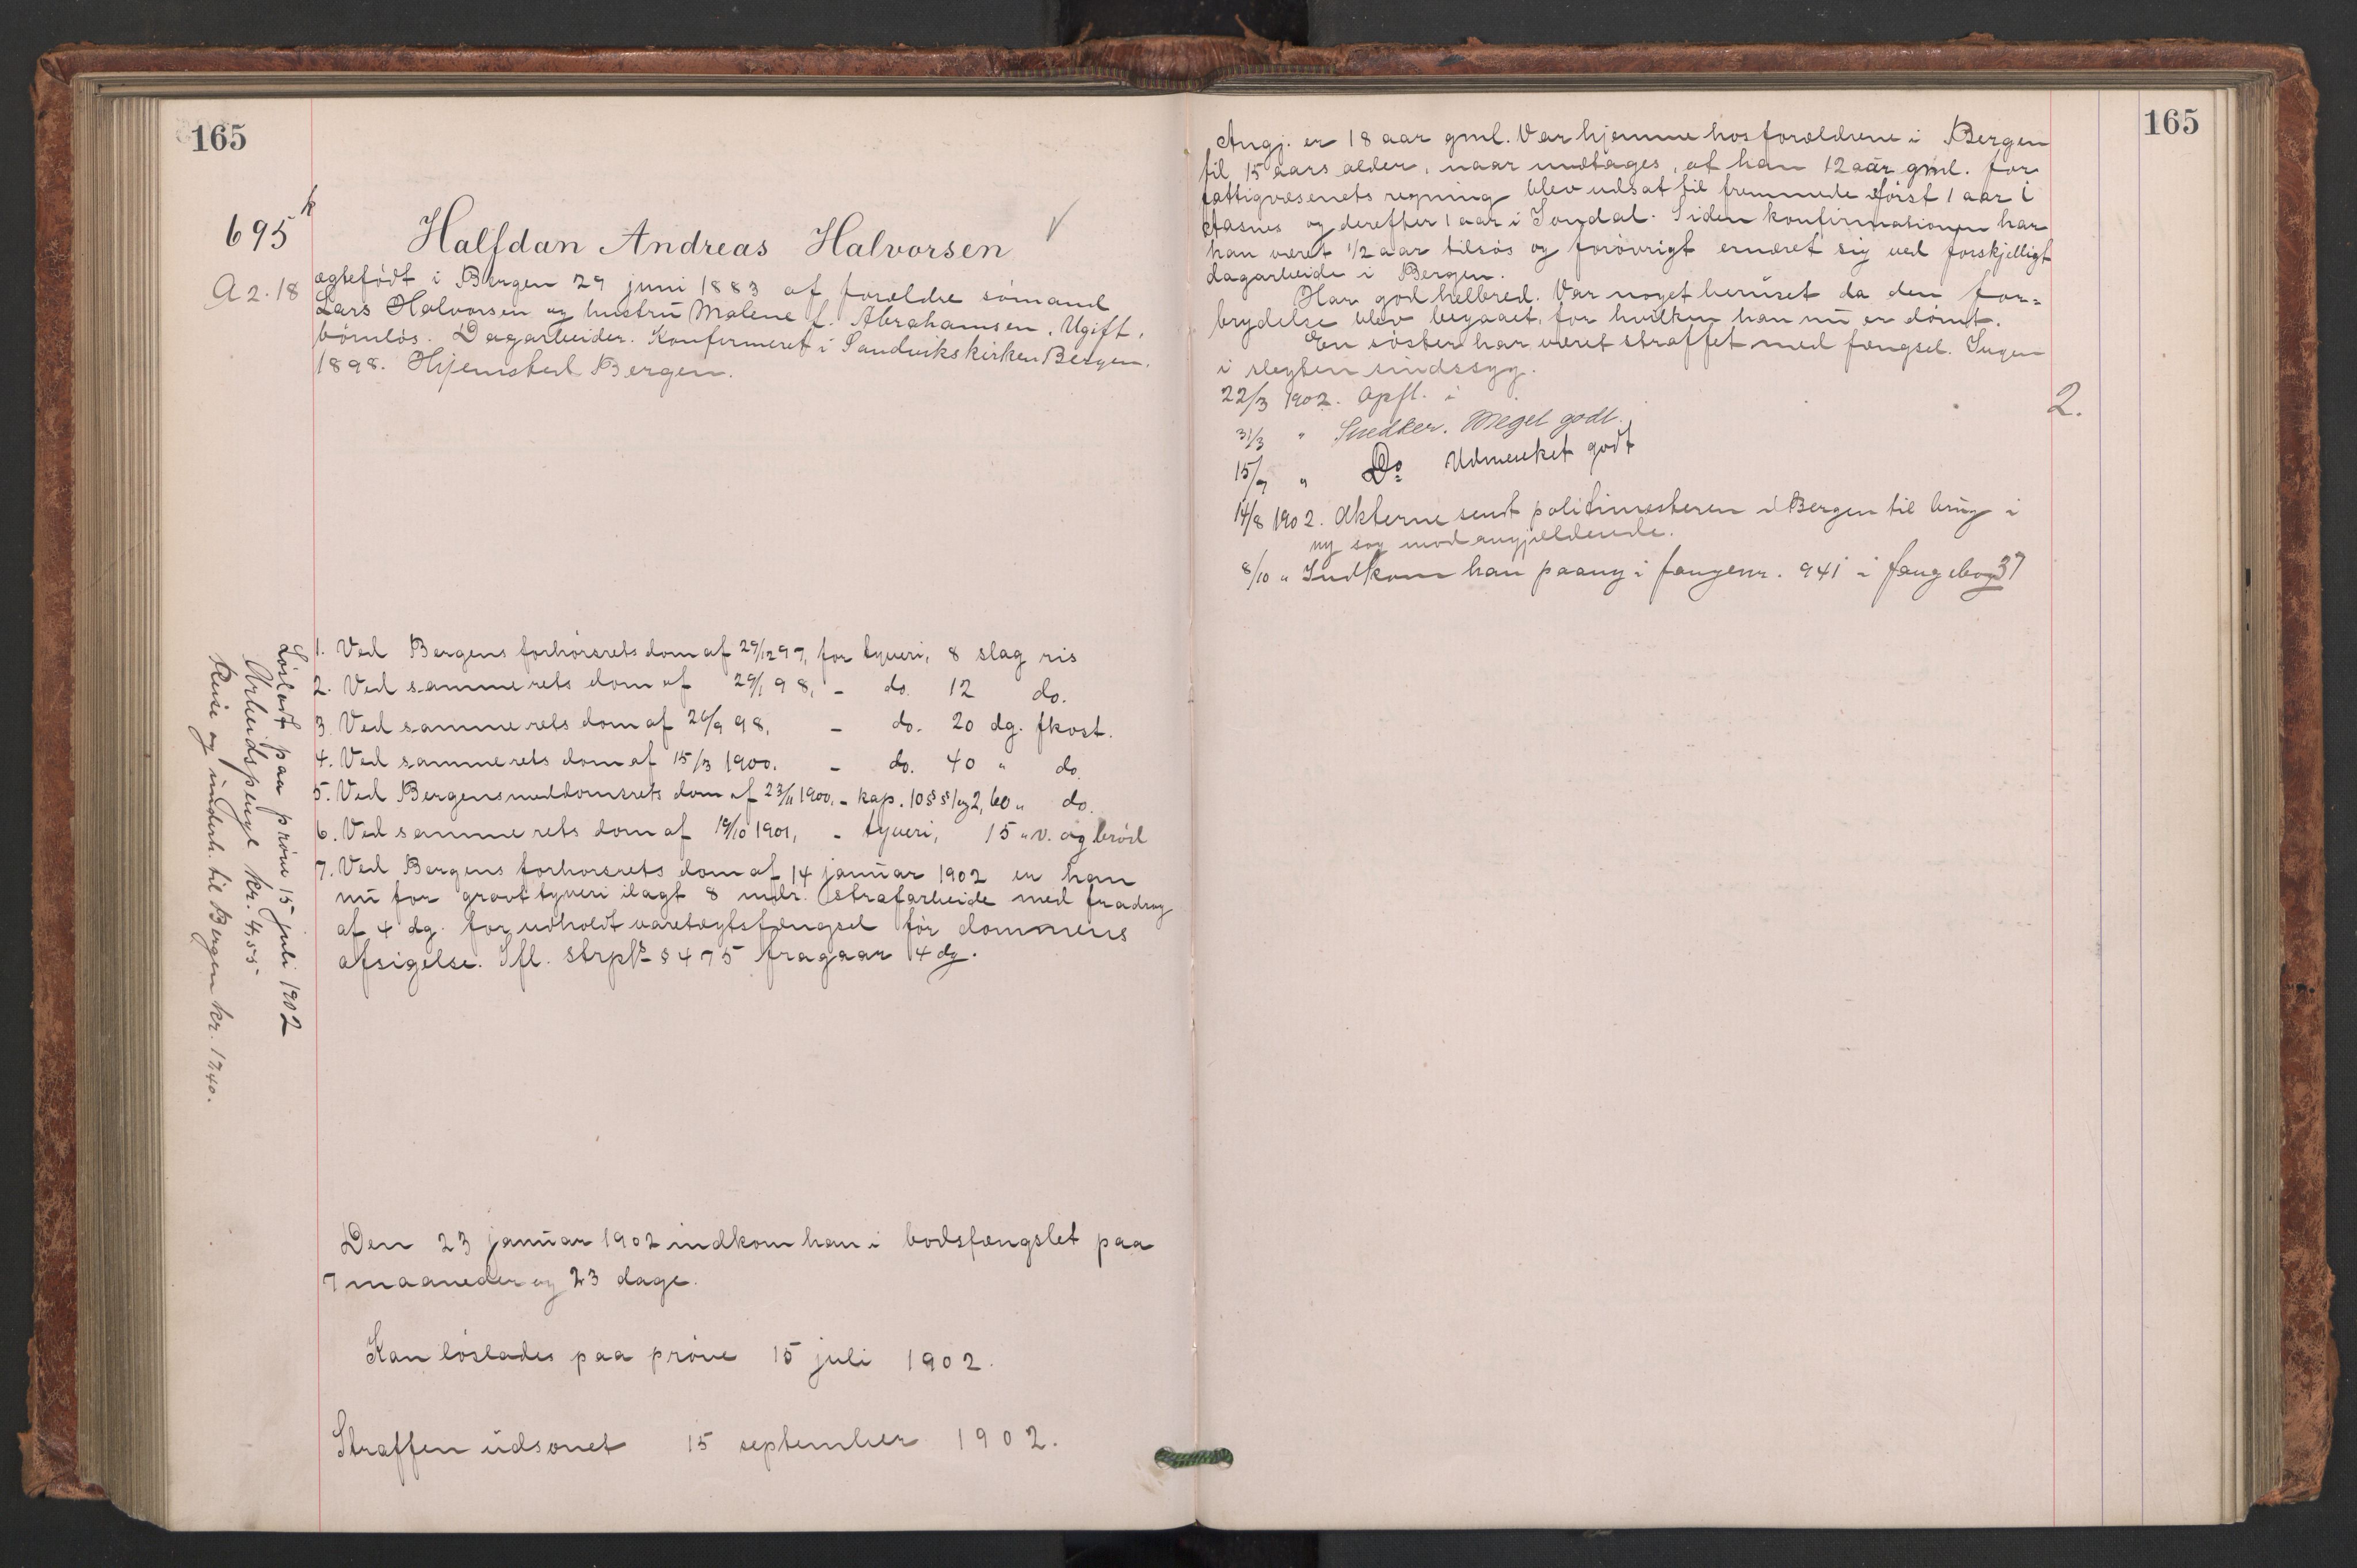 165
695 k
Halfdan Andreas Halvorsen
A 2. 18
ægtefödt i Bergen 29 juni 1883 af forældre sömand
Lars Halvorsen og hustru Malene f. Abrahamsen. Ugift,
börnlös. Dagarbeider. Konfirmeret i Sandvikskirken Bergen
1898. Hjemsted Bergen.
1. Ved Bergens forhörsrets dom af 29/12 97, for tyveri, 8 slag ris
2. Ved samme rets dom af 29/1 98, - do. 12 do.
3. Ved samme rets dom af 26/9 98, - do. 20 dg. fkost.
4. Ved samme rets dom af 15/3 1900. - do. 40 " do.
5. Ved Bergens meddomsrets dom af 23/11 1900, - kap. 10 §§ 1 og 2, 60 " do.
6. Ved samme rets dom af 19/10 1901, - tyveri, 15 " v. og bröd
7. Ved Bergens forhörsrets dom af 14 januar 1902 er han
nu for grovt tyveri ilagt 8 mdr. strafarbeide med fradrag
af 4 dg. for udholdt varetægtsfængsel för dommens
afsigelse. Ifl. strpl. § 475 fragaar 4 dg.
Lösladt paa pröve 15 juli 1902
Arbeidspenge kr. 4,55
Reise og underh. til Bergen kr. 17.40.
Den 23 januar 1902 indkom han i bodsfængslet paa
7 maaneder og 23 dage.
Kan löslades paa pröve 15 juli 1902.
Straffen udsonet 15 september 1902.
165
Angj. er 18 aar gml. Var hjemme hos forældrene i Bergen
til 15 aars alder, naar undtages, at han 12 aar gml. for
fattigvæsenets regning blev udsat til fremmede först 1 aar i
Aasnes og derefter 1 aar i Jondal. Siden konfirmationen har
han været 1/2 aar tilsös og forövrigt ernæret sig ved forskjelligt
dagarbeide i Bergen.
Har god helbred. Var noget beruset da den for=
brydelse blev begaaet, for hvilken han nu er dömt.
En söster har været straffet med fængsel. Ingen
i slegten sindssyg.
22/3 1902. Opfl. i
2.
31/3 " Snedker. Meget godt.
15/7 " Do. Udmerket godt
14/8 1902. Akterne sendt politimesteren i Bergen til brug i
ny sag mod angjældende.
8/10 " Indkom han paany i fangenr. 941 i fangebog 37